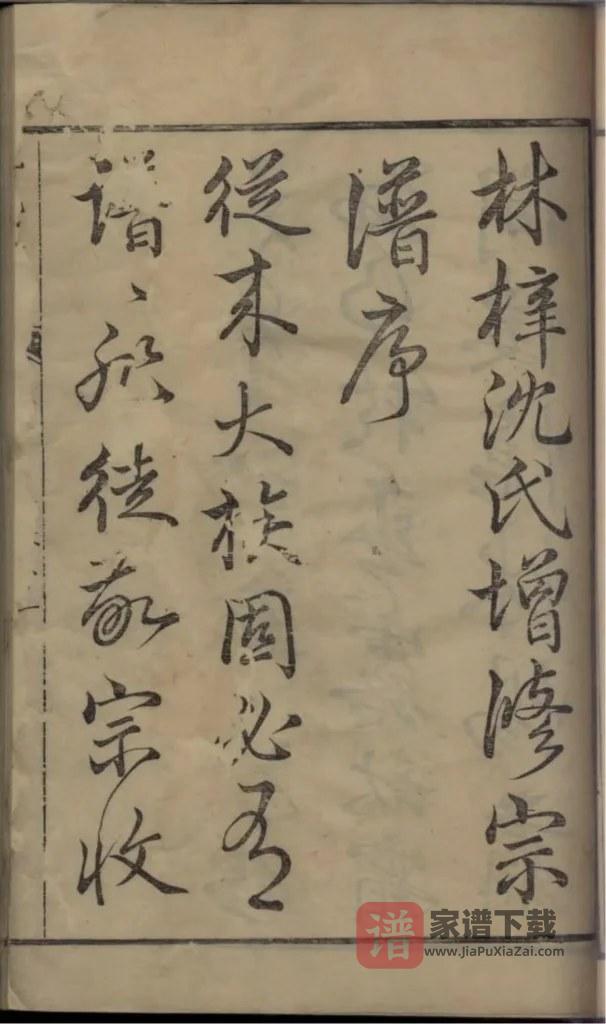 林梓沈氏增修宗
譜序
從来大族固必有
譜〻所徒敬宗收
谱 家谱下载
www.JiaPuXiaZai.com